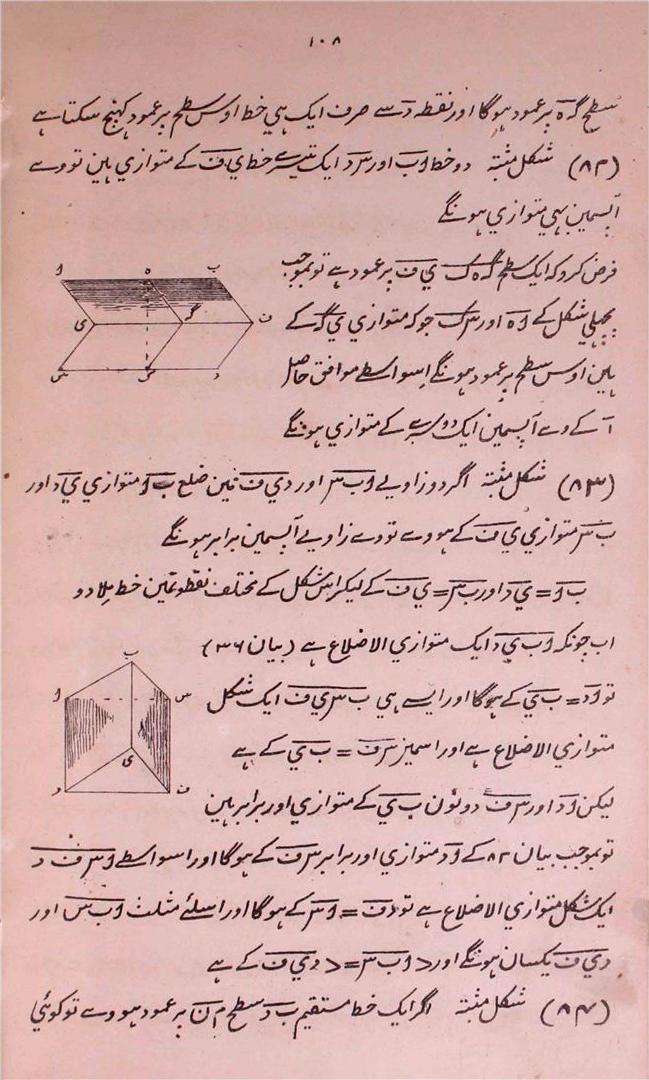 ۱۰۸
سطح گہ ہ پر عمود ہوگا اور نقطہ د سے صرف ایک ہی خط اوس سطح پر عمود کہنچ سکتا ہے
(۸۲) شکل مثبتہ دو خط وب اور س د ایک تیسرے خط ي ف کے متوازي ہین تو وے
آپسمین بہي متوازي ہونگے
فرض کرو کہ ایک سطح گہ ہ ک ي ف پر عمود ہے تو بموجب
پچہلي شکل کے و ہ اور س ک جو کہ متوازي ي گہ کے
ہین اوس سطح پر عمود ہونگے اسواسطے موافق حاصل
آ کے وے آپسمین ایک دوسرے کے متوازي ہونگے
و ہ ب
ی گہ ف
س س د
(۸۳) شکل مثبتہ اگر دو زاویے و ب س اور د ي ف مین ضلع ب و متوازي ي د اور
ب س متوازي ي ف کے ہووے تو وے زاویے آپسمین برابر ہونگے
ب و = ي د اور ب س = ي ف کے لیکر اس شکل کے مختلف نقطونمین خط ملا دو
اب چونکہ و ب ي د ایک متوازي الاضلاع ہے (بیان ۳۶)
تو و د = ب ي کے ہوگا اور ایسے ہي ب س ي ف ایک شکل
متوازي الاضلاع ہے اور اسمین س ف = ب ي کے ہے
لیکن و د اور س ف دونون ب ي کے متوازي اور برابر ہین
ب
و س
ی
د ف
تو بموجب بیان ۸۲ کے و د متوازي اور برابر س ف کے ہوگا اور اسواسطے و س ف د
ایک شکل متوازي الاضلاع ہے تو د ف = و س کے ہوگا اور اسلئے مثلث و ب س اور
د ي ف یکسان ہونگے اور < و ب س = < د ي ف کے ہے
(۸۴) شکل مثبتہ اگر ایک خط مستقیم ب د سطح م ن پر عمود ہووے تو کوئي